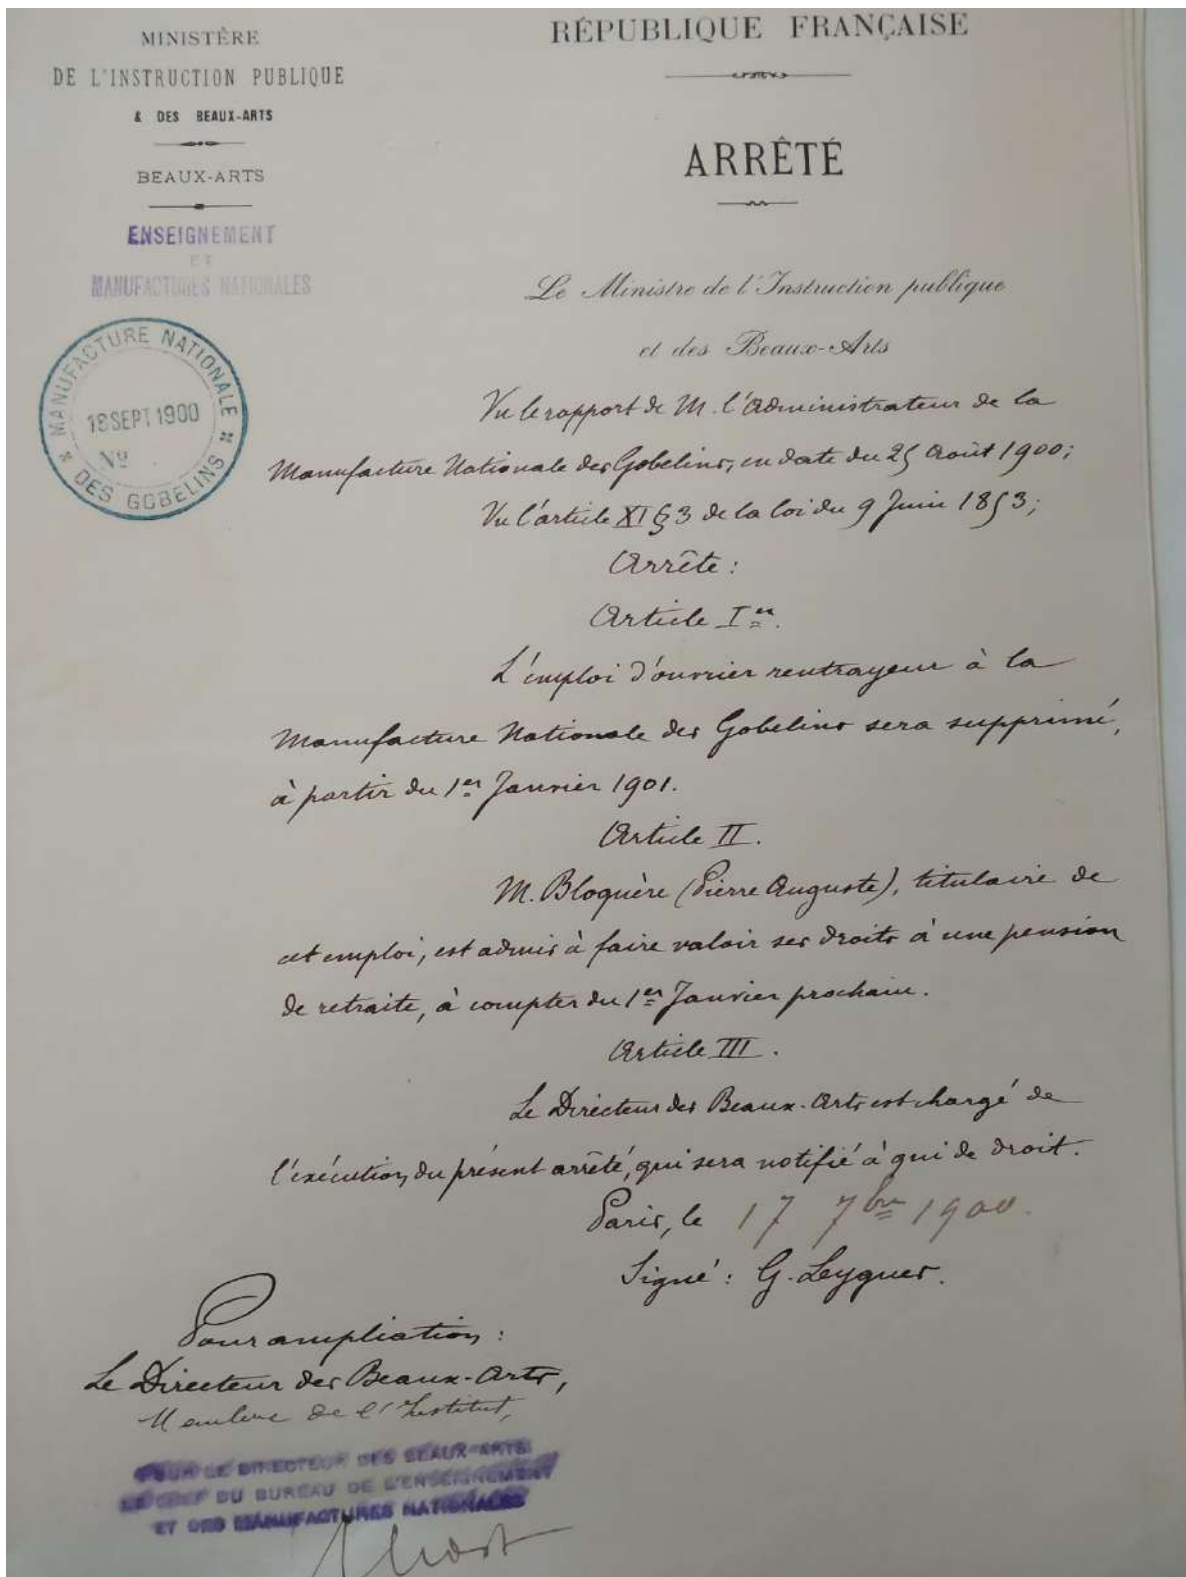 MINISTÈRE
DE L'INSTRUCTION PUBLIQUE
& DES BEAUX-ARTS
BEAUX-ARTS
ENSEIGNEMENT
ET
MANUFACTURES NATIONALES
MANUFACTURE NATIONALE
18 SEPT 1900
Nº
DES GOBELINS
RÉPUBLIQUE FRANÇAISE
ARRÊTÉ
Le Ministre de l'Instruction publique
et des Beaux-Arts
Vu le rapport de M. l'Administrateur de la
Manufacture Nationale des Gobelins, en date du 25 Août 1900;
Vu l'article XI § 3 de la loi du 9 Juin 1853;
Arrête:
Article Ier.
L'emploi d'ouvrier rentrayeur à la
Manufacture Nationale des Gobelins sera supprimé,
à partir du 1er Janvier 1901.
Article II.
M. Bloquère (Pierre Auguste), titulaire de
cet emploi, est admis à faire valoir ses droits à une pension
de retraite, à compter du 1er Janvier prochain.
Article III.
Le Directeur des Beaux-Arts est chargé de
l'exécution du présent arrêté, qui sera notifié à qui de droit.
Paris, le 17 7bre 1900.
Signé: G. Leygues.
Pour ampliation:
Le Directeur des Beaux-Arts,
Membre de l'Institut,
POUR LE DIRECTEUR DES BEAUX-ARTS
LE CHEF DU BUREAU DE L'ENSEIGNEMENT
ET DES MANUFACTURES NATIONALES